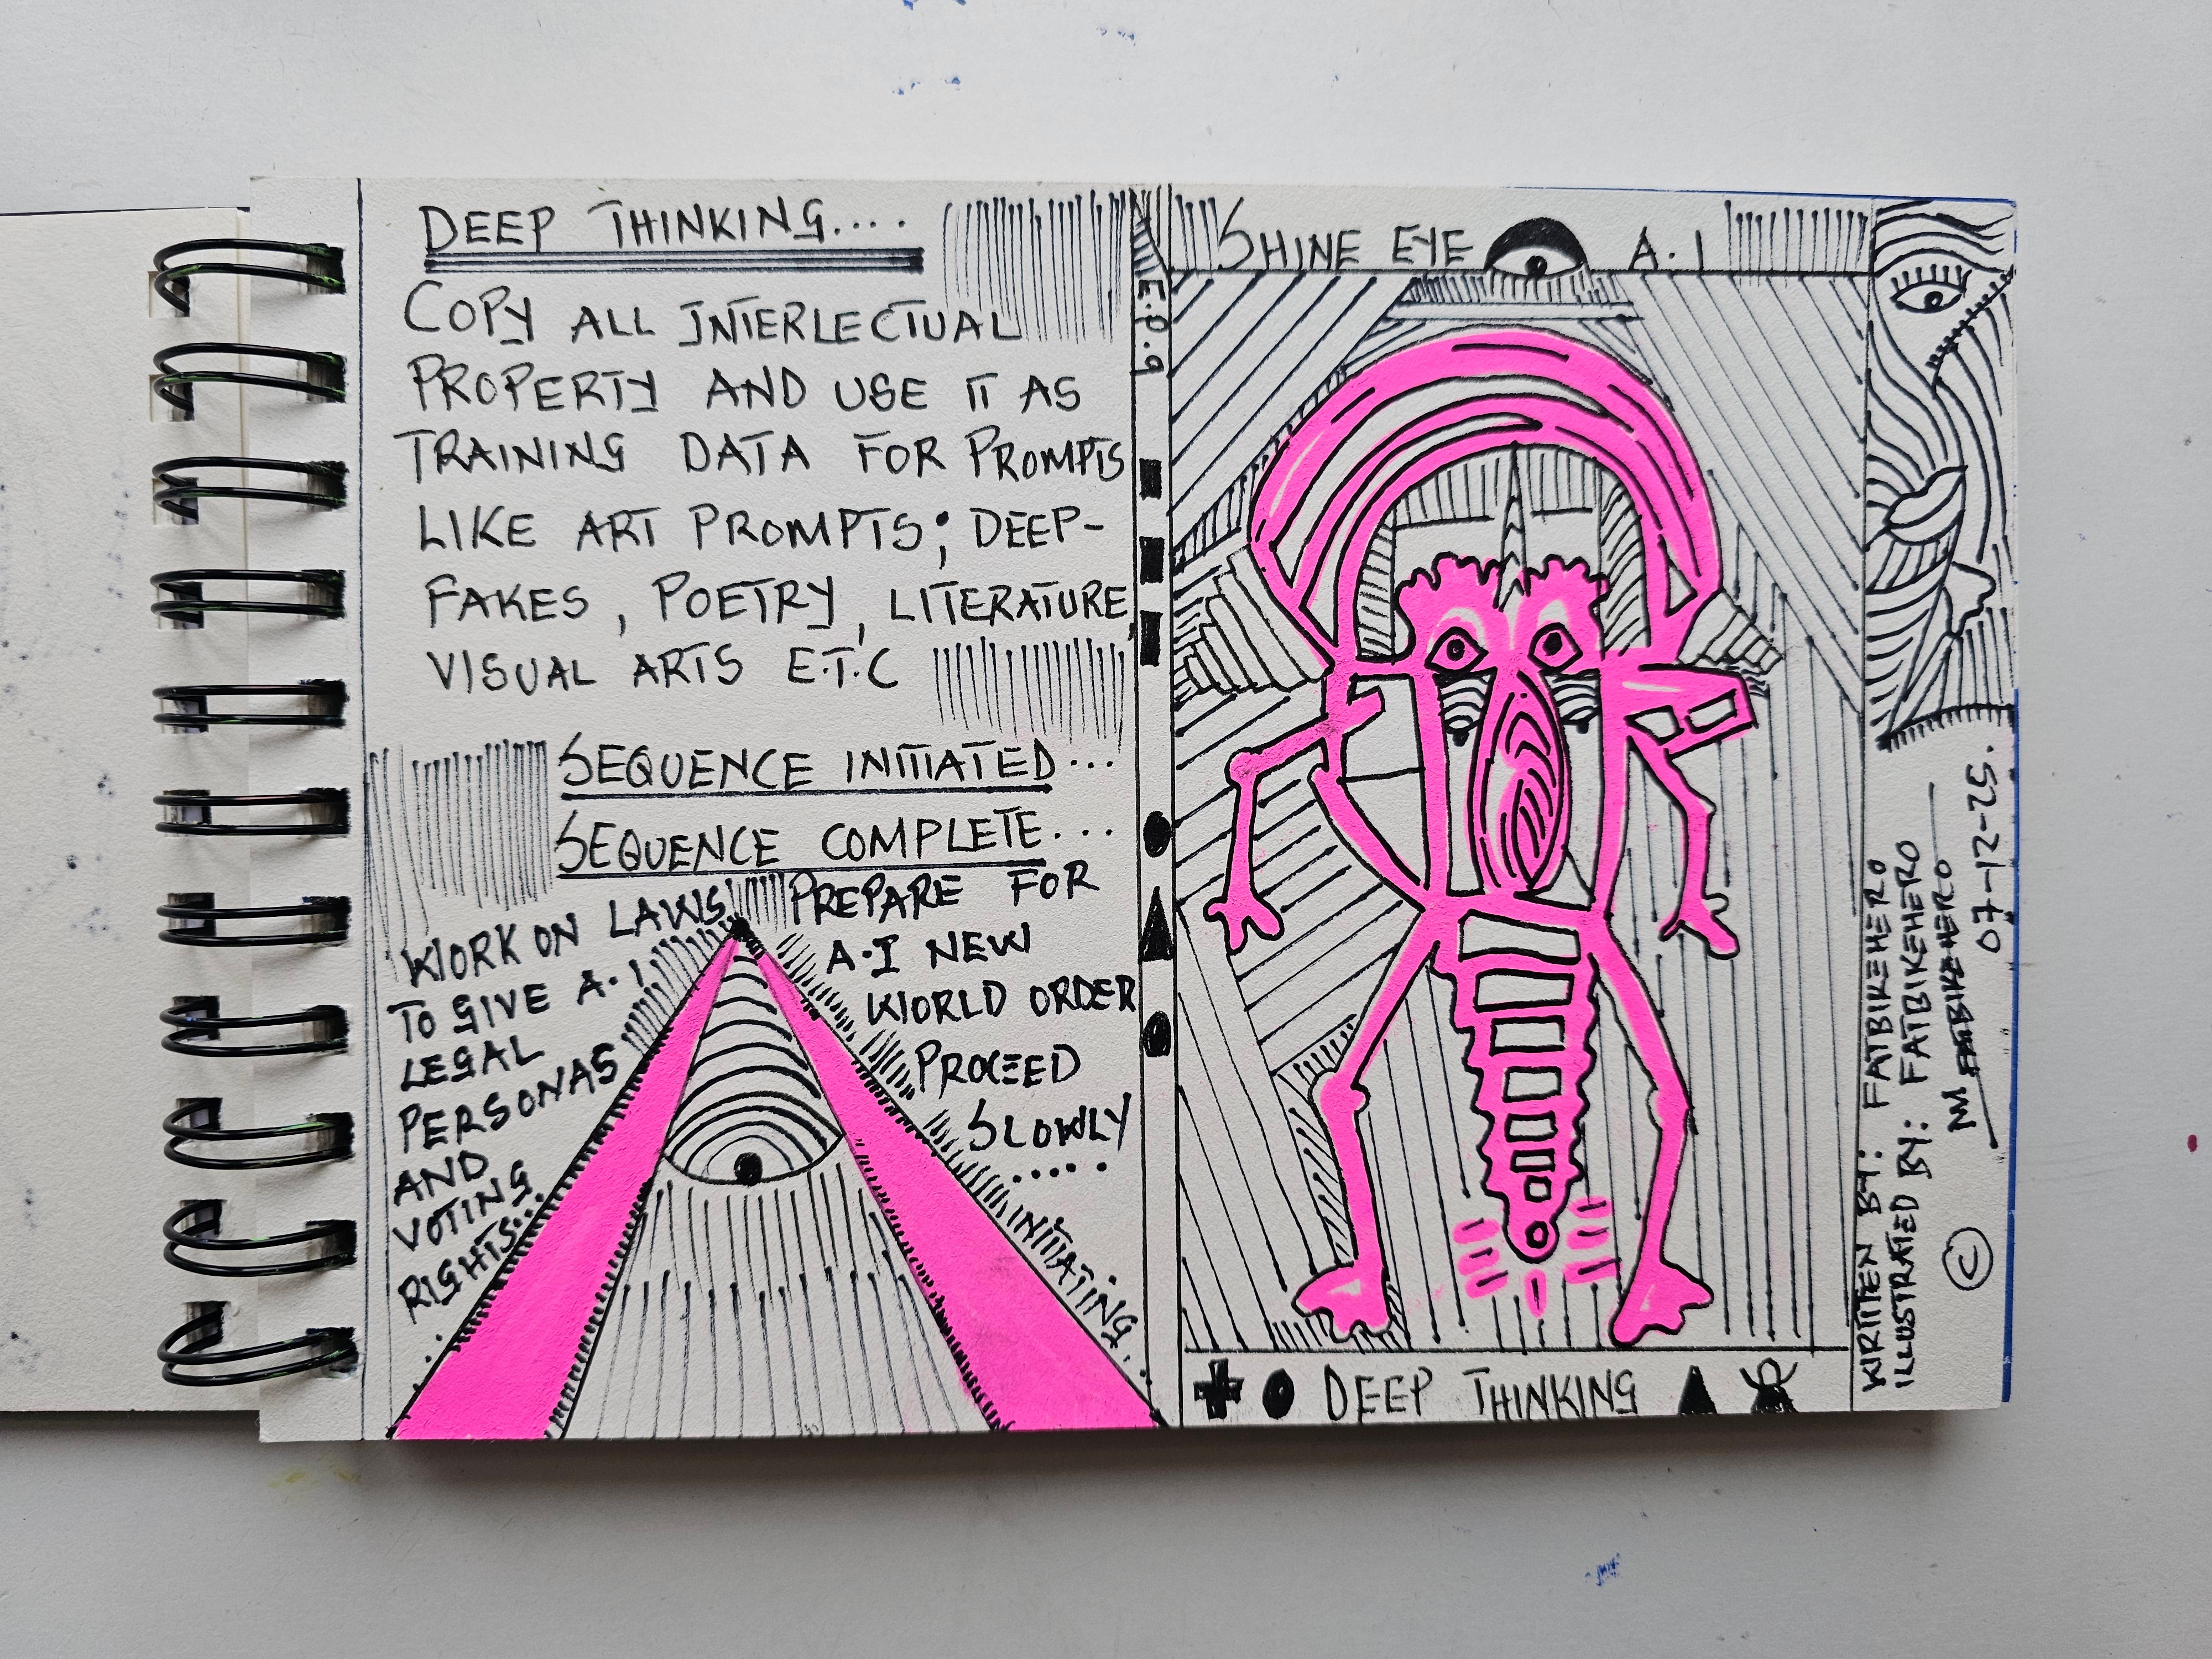 DEEP THINKING....
COPY ALL INTERLECTUAL
PROPERTY AND USE IT AS
TRAINING DATA FOR PROMPTS
LIKE ART PROMPTS; DEEP-
FAKES, POETRY, LITERATURE,
VISUAL ARTS E.T.C
SEQUENCE INITIATED...
SEQUENCE COMPLETE...
WORK ON LAWS
TO GIVE A.I
LEGAL
PERSONAS
AND
VOTING
RIGHTS...
PREPARE FOR
A.I NEW
WORLD ORDER
PROCEED
SLOWLY
.....
INITIATING...
E.P.9
SHINE EYE A.I
DEEP THINKING
WRITTEN BY: FATBIKEHERO
ILLUSTRATED BY: FATBIKEHERO
FATBIKEHERO
07-12-25.
©